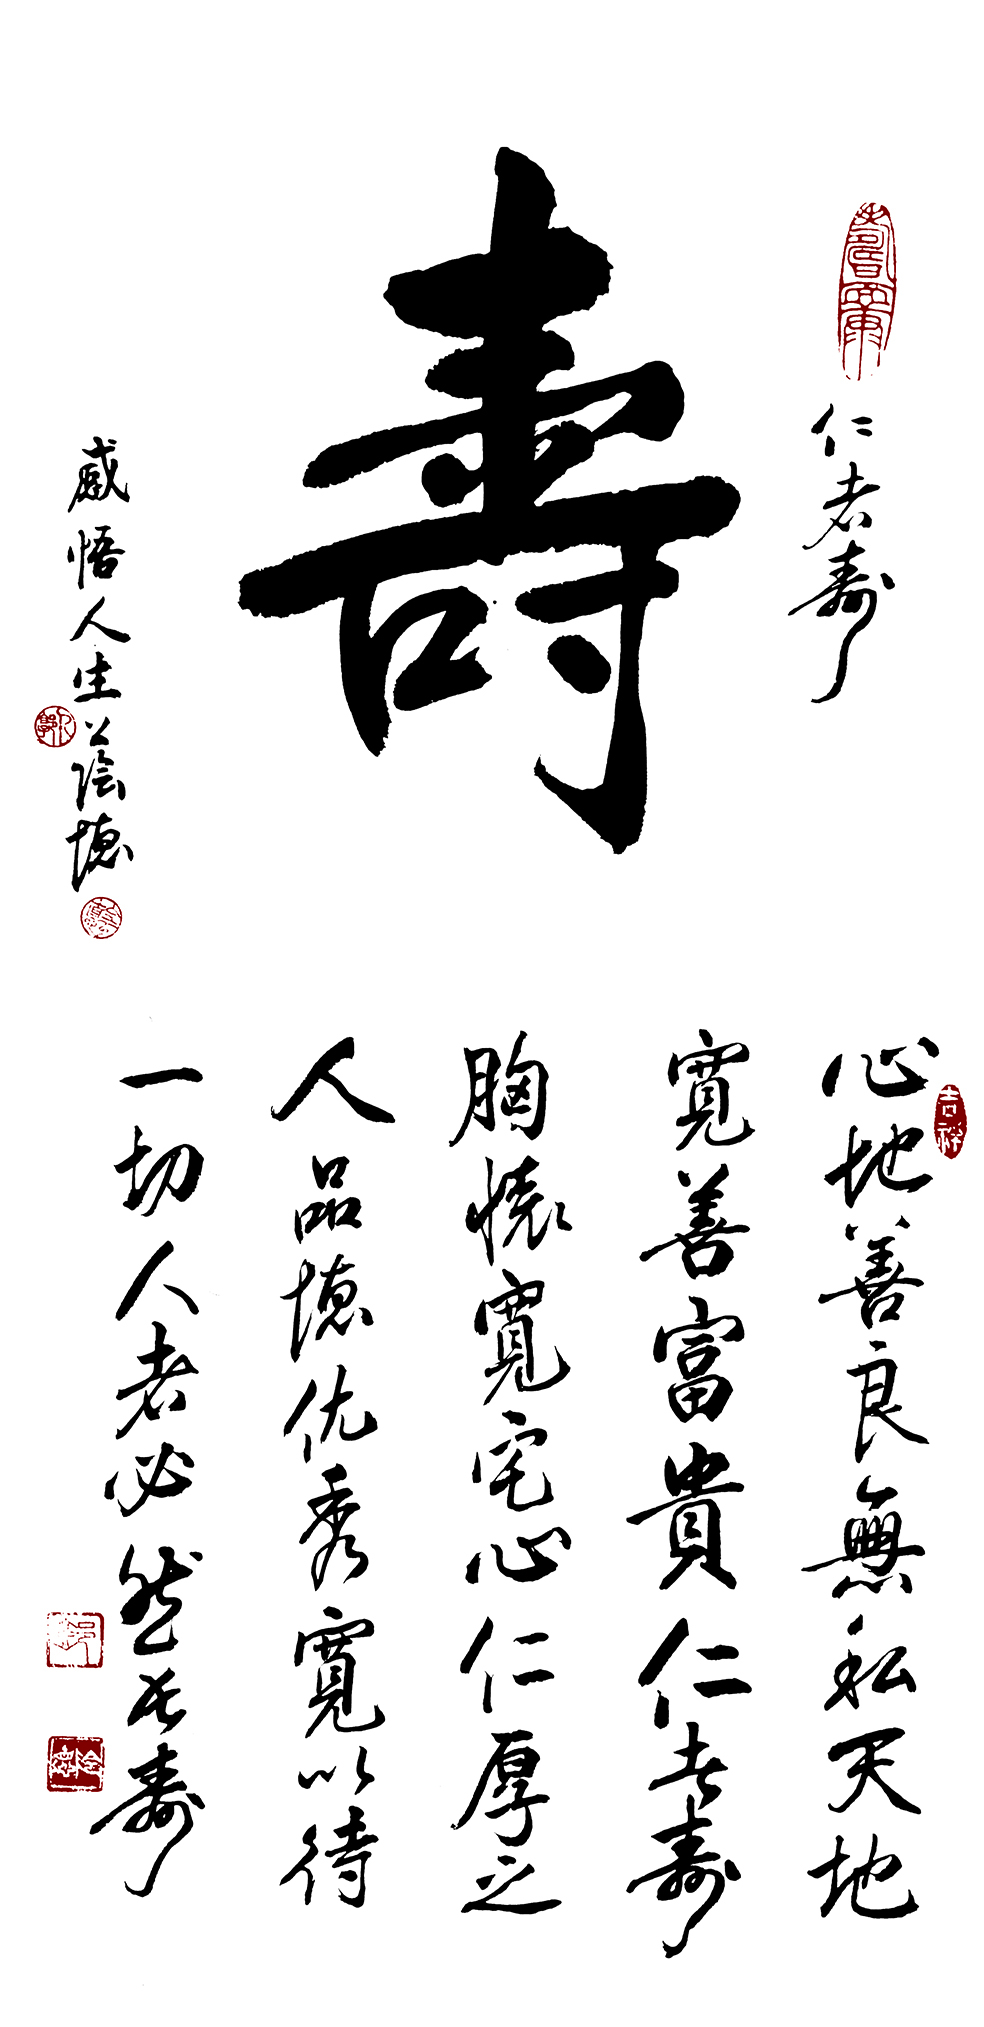 仁者壽
壽
感悟人生蔭德
吉祥
心地善良無私天地
寬善富貴仁者壽
胸懷寬宅心仁厚之
人品德优秀寬以待
一切人者必然长壽